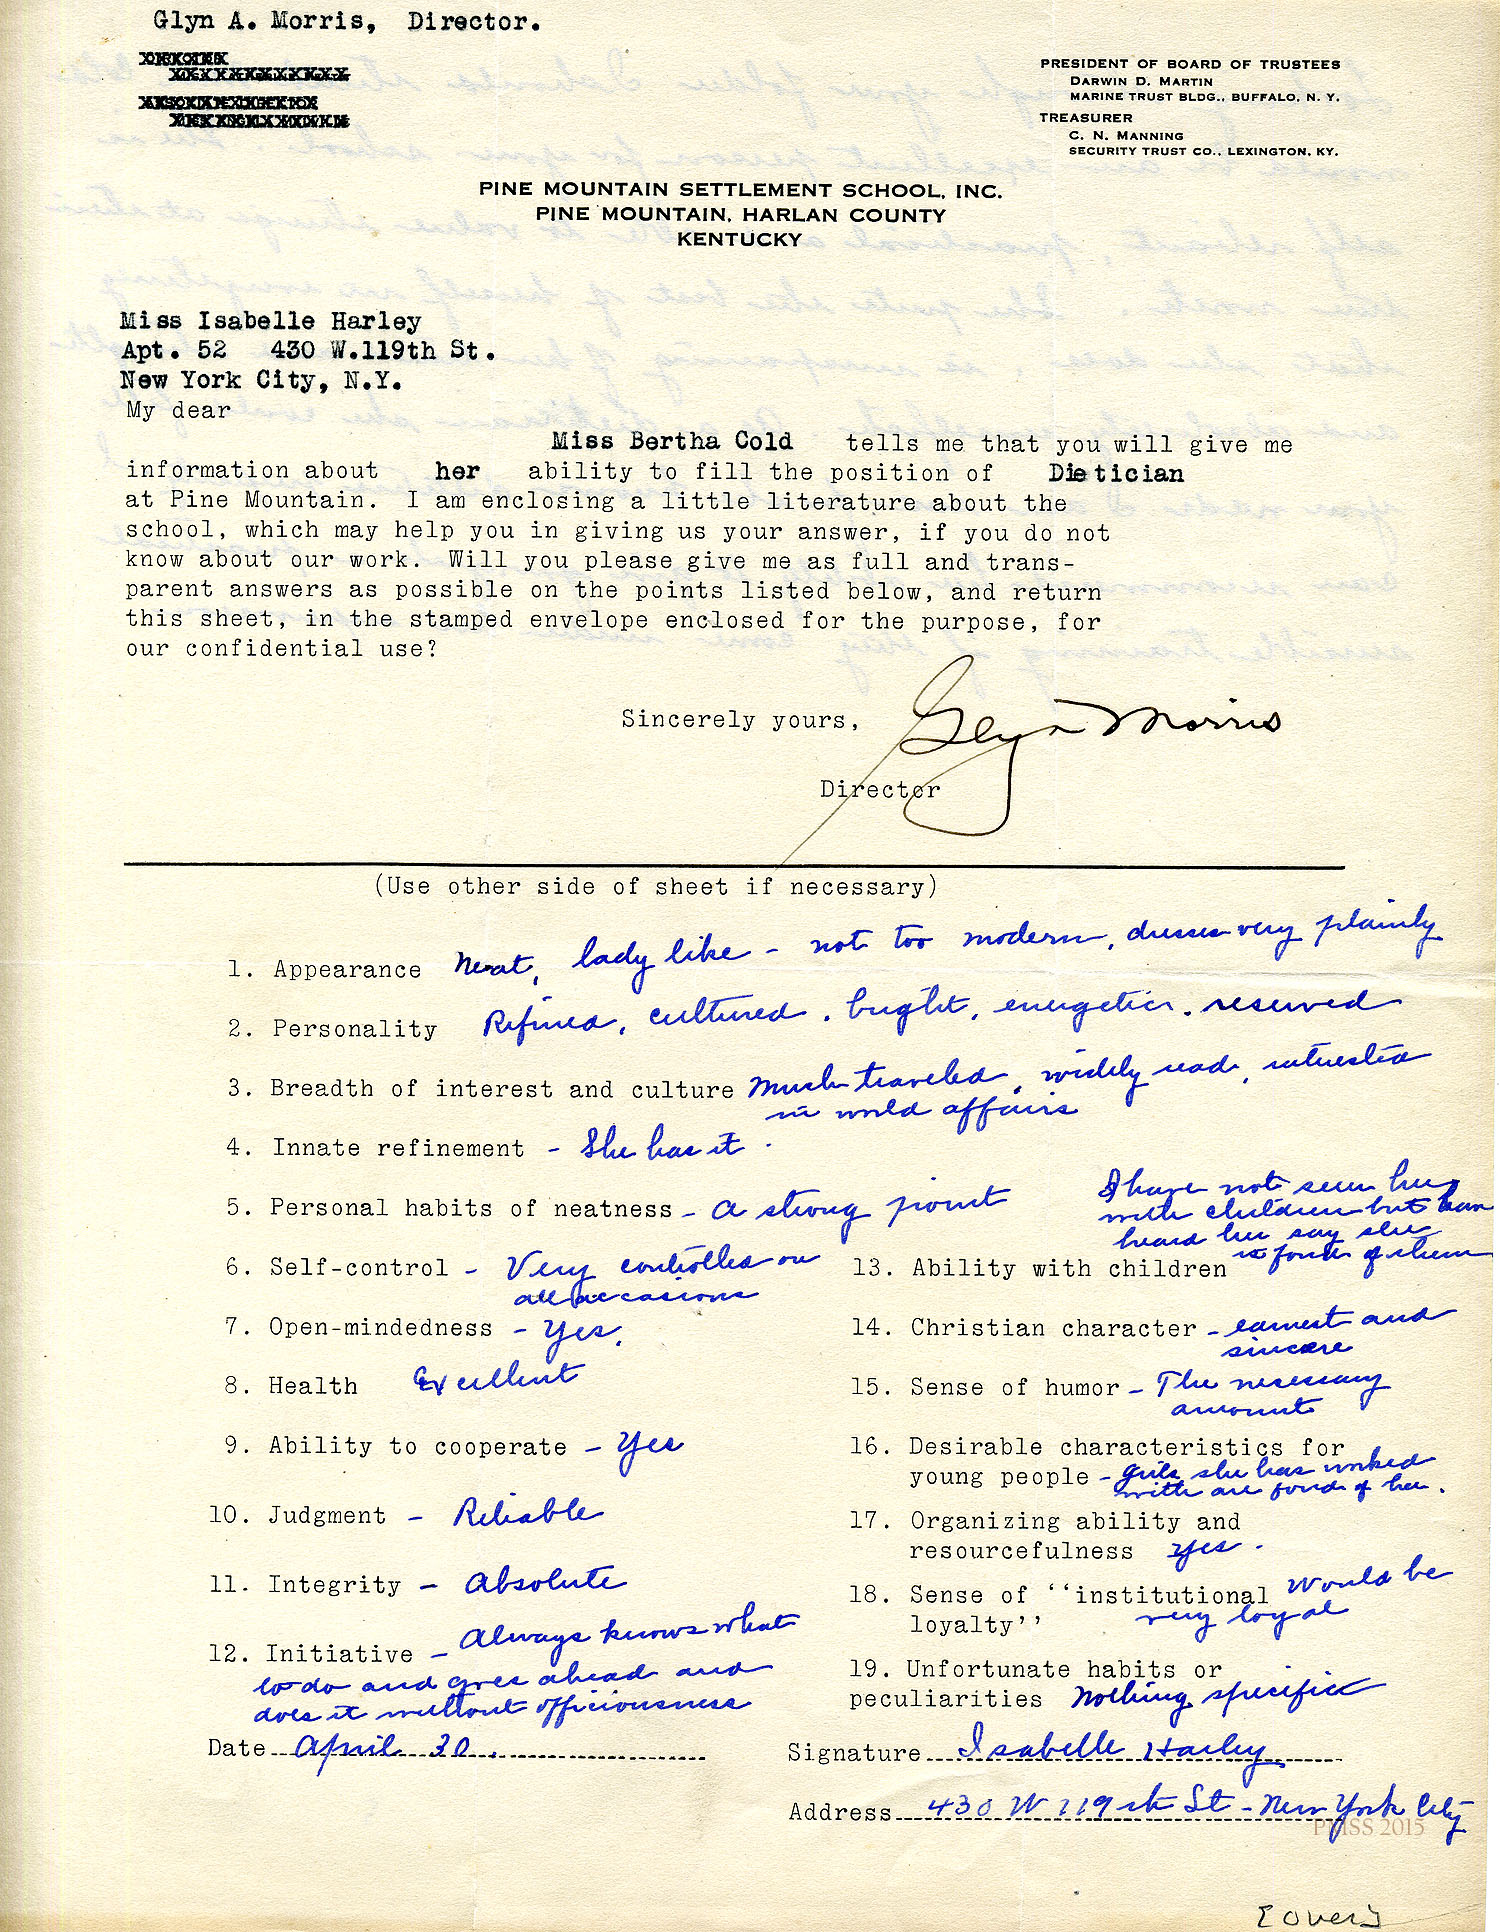 Glyn A. Morris, Director.
PRESIDENT OF BOARD OF TRUSTEES
DARWIN D. MARTIN
MARINE TRUST BLDG., BUFFALO, N. Y.
TREASURER
C. N. MANNING
SECURITY TRUST CO., LEXINGTON, KY.
PINE MOUNTAIN SETTLEMENT SCHOOL, INC.
PINE MOUNTAIN, HARLAN COUNTY
KENTUCKY
Miss Isabelle Harley
Apt. 52 430 W.119th St.
New York City, N.Y.
My dear
Miss Bertha Cold tells me that you will give me
information about her ability to fill the position of Dietician
at Pine Mountain. I am enclosing a little literature about the
school, which may help you in giving us your answer, if you do not
know about our work. Will you please give me as full and trans-
parent answers as possible on the points listed below, and return
this sheet, in the stamped envelope enclosed for the purpose, for
our confidential use?
Sincerely yours,
Glyn Morris
Director
(Use other side of sheet if necessary)
1. Appearance Neat, lady like - not too modern, dresses very plainly
2. Personality Refined, cultured, bright, energetic, reserved
3. Breadth of interest and culture Much traveled, widely read, interested
in world affairs
4. Innate refinement - She has it.
5. Personal habits of neatness - A strong point
6. Self-control - Very controlled on
all occasions
7. Open-mindedness - Yes.
8. Health Excellent
9. Ability to cooperate - Yes
10. Judgment - Reliable
11. Integrity - Absolute
12. Initiative - Always knows what
to do and goes ahead and
does it without officiousness
I have not seen her
with children but have
heard her say she
is fond of them
13. Ability with children
14. Christian character - earnest and
sincere
15. Sense of humor - The necessary
amount
16. Desirable characteristics for
young people - girls she has worked
with are fond of her.
17. Organizing ability and
resourcefulness yes.
18. Sense of ‘‘institutional Would be
loyalty’’ very loyal
19. Unfortunate habits or
peculiarities Nothing specific
Date April 30.
Signature Isabelle Harley
Address 430 W 119th St - New York City
PMSS 2015
[over]